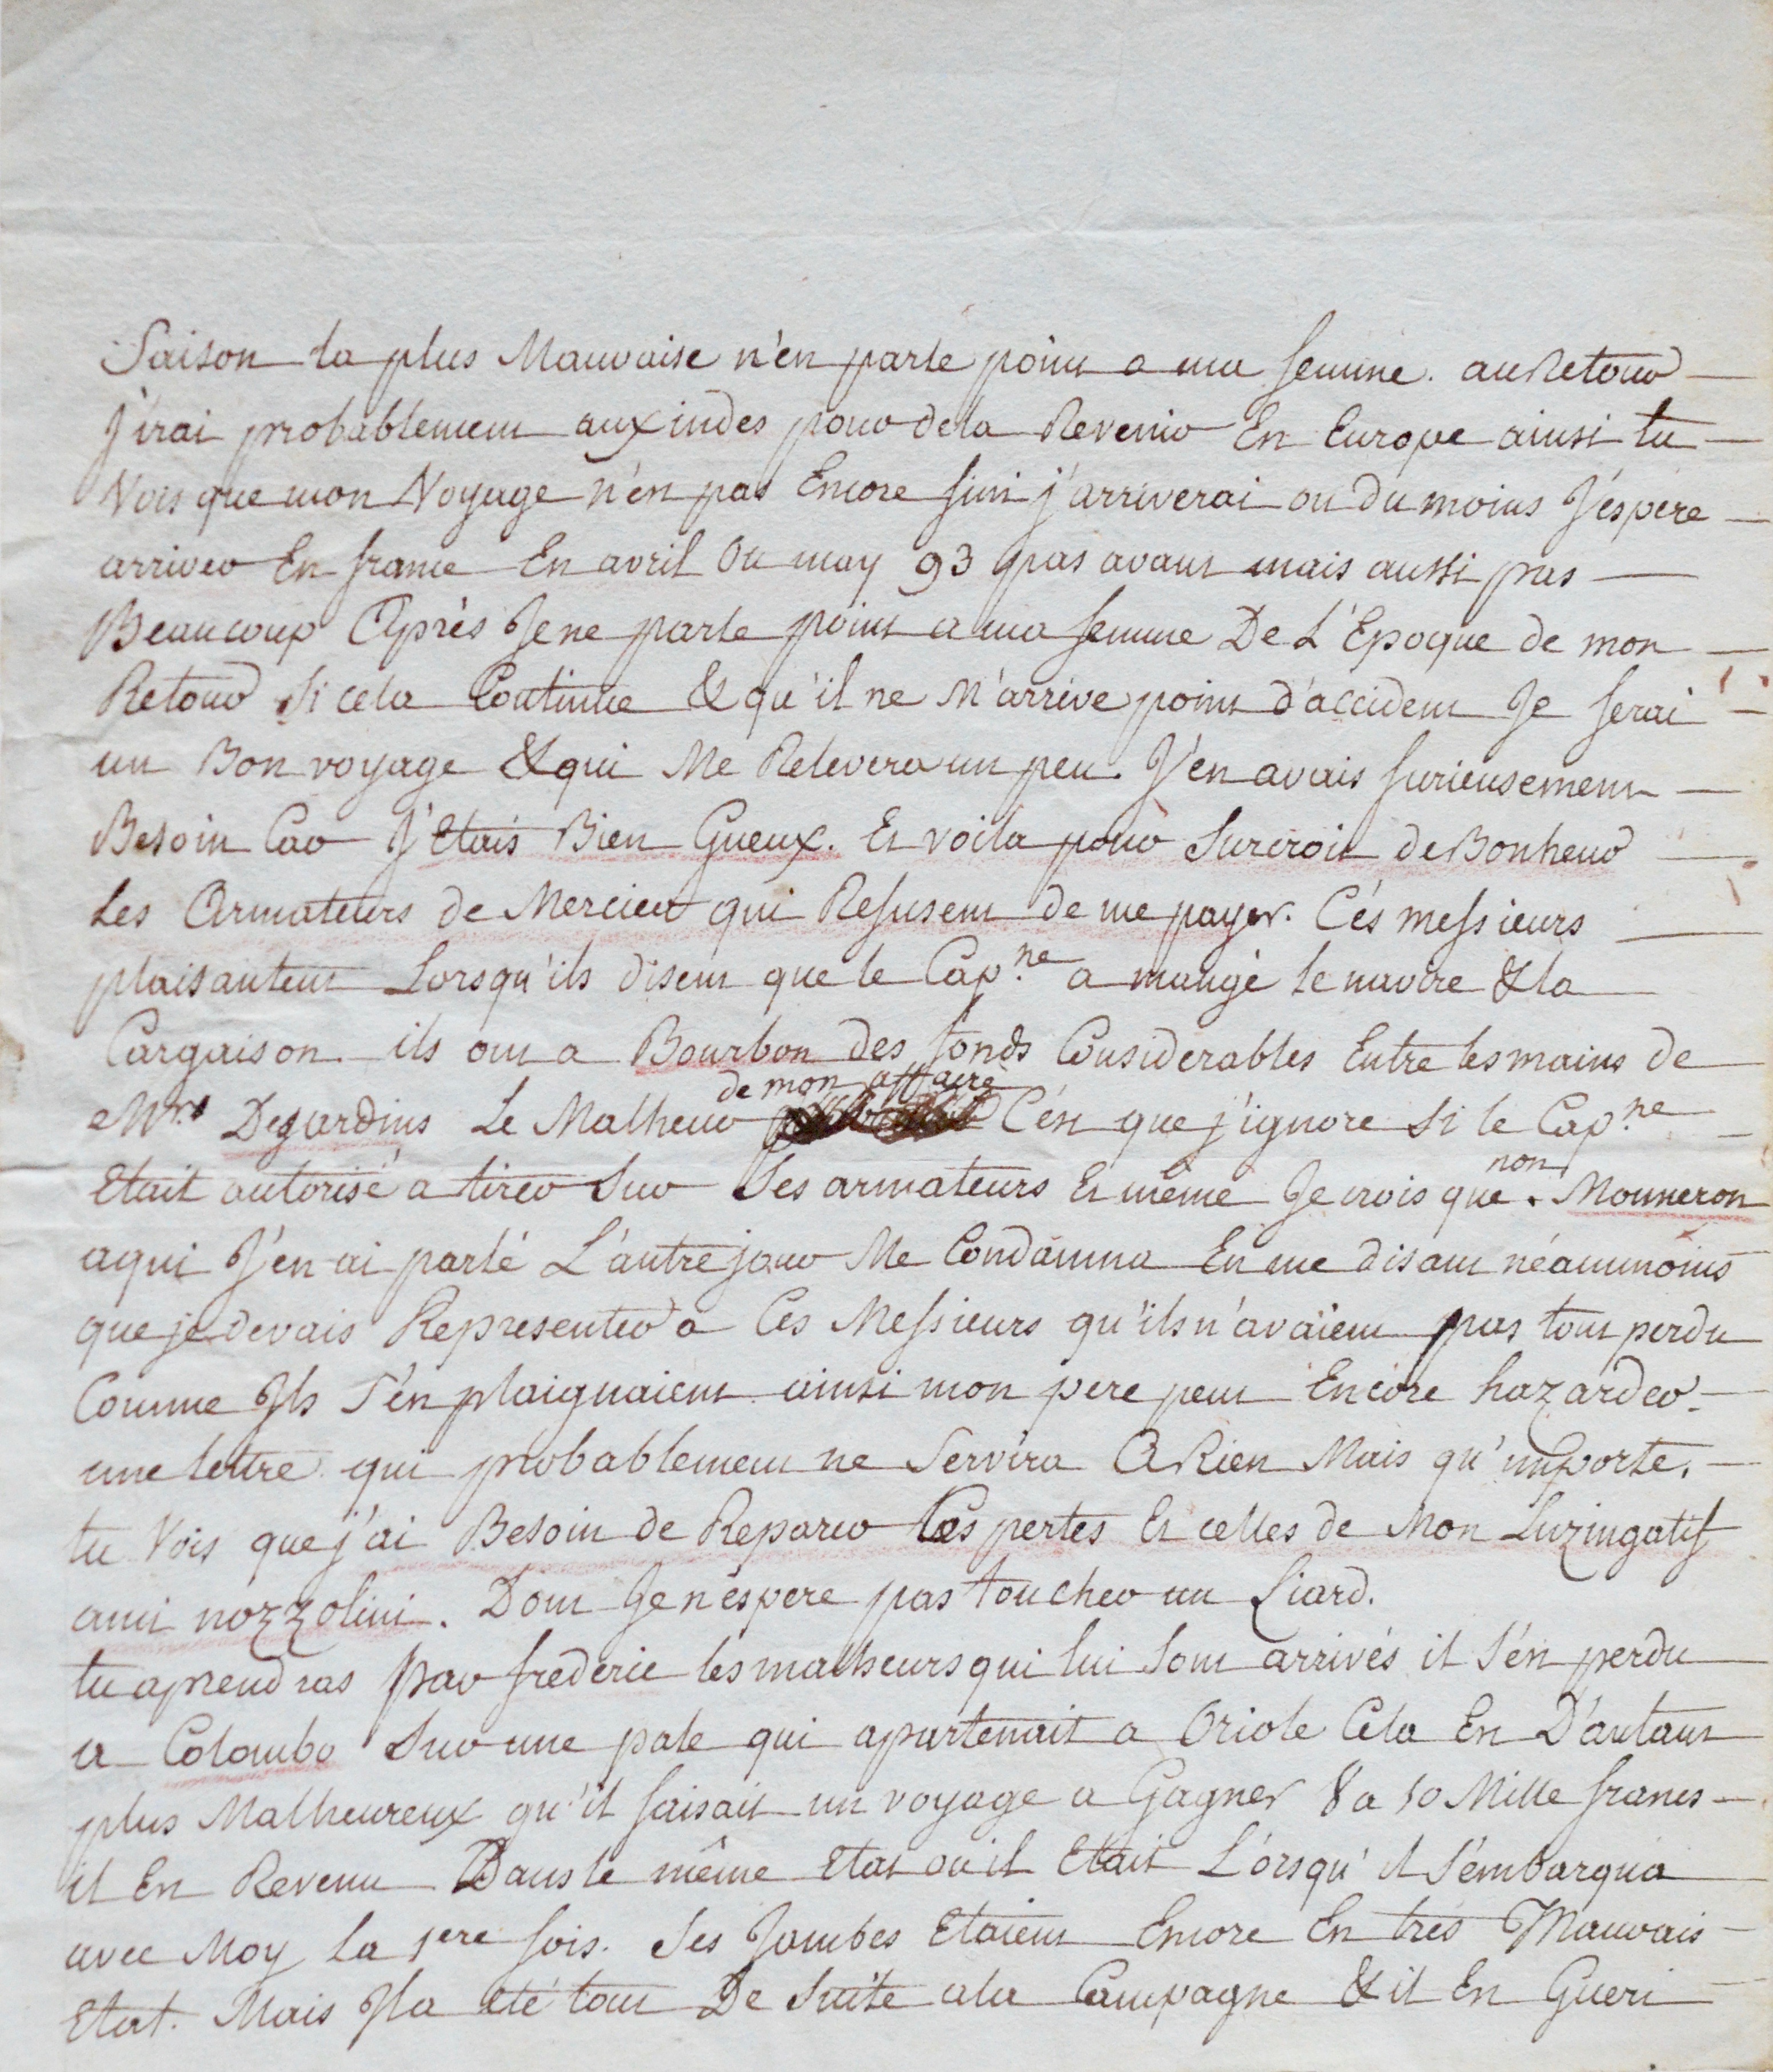 Saison la plus Mauvaise n'en parle point a ma femme. au Retour
J'irai probablement aux indes pour dela Revenir En Europe ainsi tu
Vois que mon Voyage n'est pas Encore fini j'arriverai ou du moins J'éspere
arriver En france En avril Ou may 93 pas avant mais aussi pas
Beaucoup Après Je ne parle point a ma femme De L'Epoque de mon
Retour Si cela Continue & qu'il ne M'arrive point d'accident Je ferai
un Bon voyage & qui Me Relevera un peu. J'en avais furieusement
Besoin Car J'Etais Bien Gueux. Et voila pour Surcroit de Bonheur
Les Armateurs de Mercier qui Refusent de me payer. Cés messieurs
plaisantent Lorsqu'ils disent que le Cap.ne a mangé le navire & la
Cargaison. ils ont a Bourbon des fonds Considerables Entre les mains de
Mrs Desjardins Le Malheur de mon affaire C'ést que j'ignore Si le Cap.ne
Etait autorisé a tirer Sur Ses armateurs Et même Je crois que non. Monneron
aqui J'en ai parlé L'autre jour Me Condamna En me disant néammoins
que je devais Representer a Ces Messieurs qu'ils n'avaient pas tout perdu
Comme Ils S'en plaignaient ainsi mon pere peut Encore hazarder
une lettre qui probablement ne Servira A Rien Mais qu'importe.
tu Vois que j'ai Besoin de Reparer Ces pertes Et celles de Mon Luzingatif
ami nozzolini. Dont Je n'éspere pas toucher un Liard.
tu aprendras par frederic les malheurs qui lui Sont arrivés il S'ést perdu
a Colombo Sur une pale qui apartenait a Oriole Cela Est D'autant
plus Malheureux qu'il faisait un voyage a Gagner 8 a 10 Mille francs
il Est Revenu Dans le même Etat ou il Etait L'orsqu'il S'émbarqua
avec Moy La 1ere fois. Ses Jambes Etaient Encore En trés Mauvais
Etat. Mais Il a eté tout De Suite ala Campagne & il Est Gueri